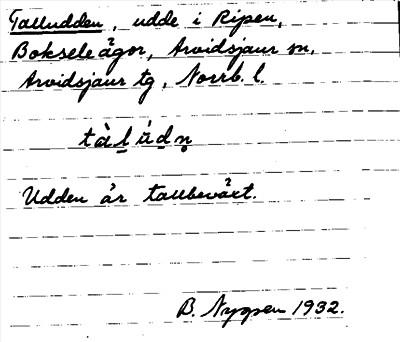 Talludden, udde i Ripen,
Bokseleågor, Arvidsjaur sn,
Arvidsjaur tg, Norrb. l.
tàlúdn̥
Udden är tallbeväxt.
B. Nygren 1932.